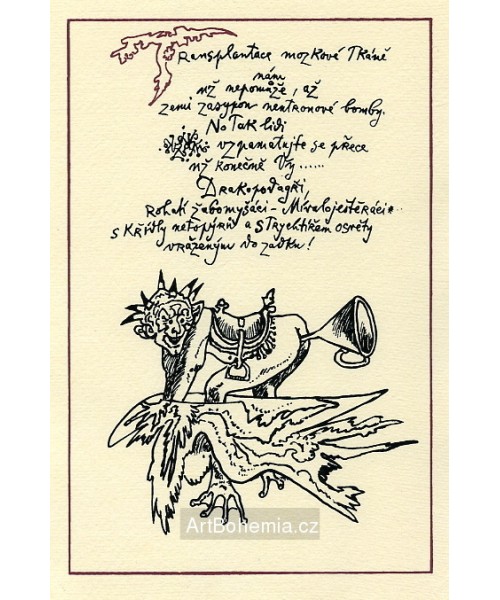 Transplantace mozkové tkáně
nám
už nepomůže, až
zemi zasypou neutronové bomby.
No tak lidi
vzpamatujte se přece
už konečně Vy......
Drakopodagři,
Rohatí žabomyšáci - Míraloještěráci
s křídly netopýrů a s trychtířem osvěty
vraženým do zadku!
ArtBohemia.cz